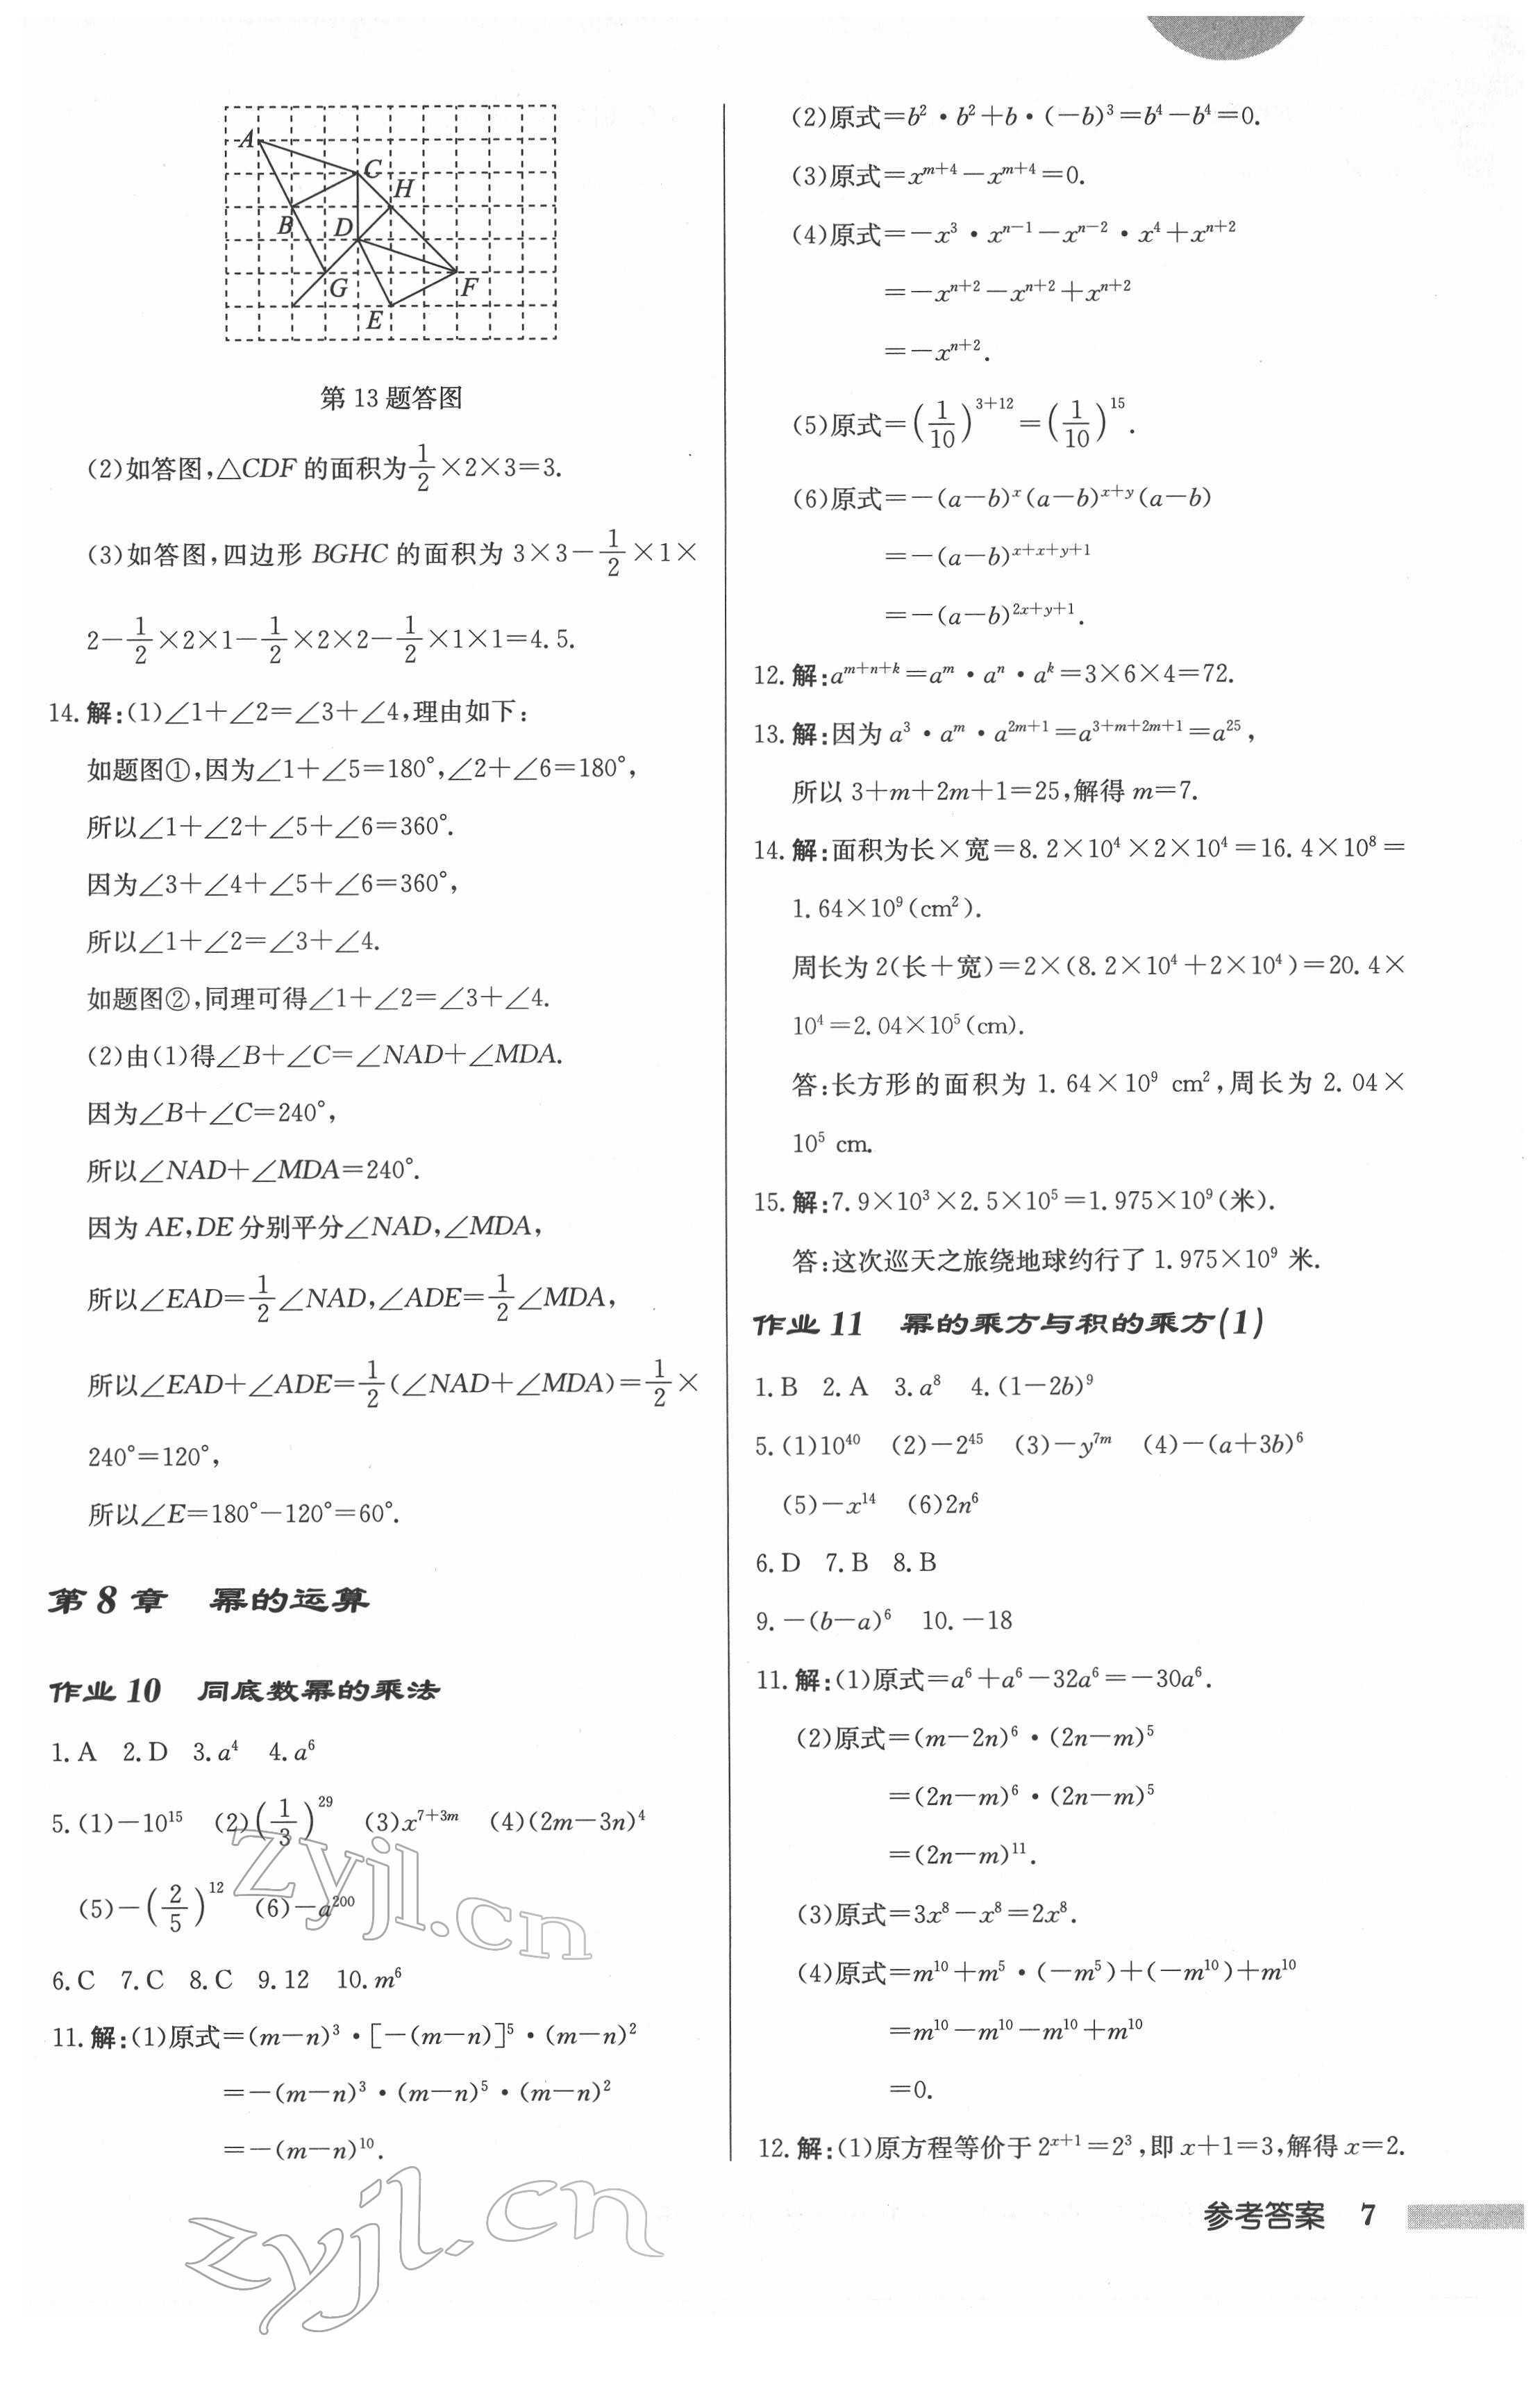 A
C
H
B
D
G
F
E
第 13 题答图
(2)如答图,△CDF 的面积为1/2×2×3=3.
(3)如答图,四边形 BGHC 的面积为 3×3−1/2×1×
2−1/2×2×1−1/2×2×2−1/2×1×1=4.5.
14.解:(1)∠1+∠2=∠3+∠4,理由如下:
如题图①,因为∠1+∠5=180°,∠2+∠6=180°,
所以∠1+∠2+∠5+∠6=360°.
因为∠3+∠4+∠5+∠6=360°,
所以∠1+∠2=∠3+∠4.
如题图②,同理可得∠1+∠2=∠3+∠4.
(2)由(1)得∠B+∠C=∠NAD+∠MDA.
因为∠B+∠C=240°,
所以∠NAD+∠MDA=240°.
因为 AE,DE 分别平分∠NAD,∠MDA,
所以∠EAD=1/2∠NAD,∠ADE=1/2∠MDA,
所以∠EAD+∠ADE=1/2(∠NAD+∠MDA)=1/2×
240°=120°,
所以∠E=180°−120°=60°.
第 8 章 幂的运算
作业 10 同底数幂的乘法
1. A 2. D 3. a⁴ 4. a⁶
5. (1)−10¹⁵ (2)(1/3)²⁹ (3)x^(7+3m) (4)(2m−3n)⁴
(5)−(2/5)¹² (6)−a²⁰⁰
6. C 7. C 8. C 9. 12 10. m⁶
11.解:(1)原式=(m−n)³·[−(m−n)]⁵·(m−n)²
=−(m−n)³·(m−n)⁵·(m−n)²
=−(m−n)¹⁰.
(2)原式=b²·b²+b·(−b)³=b⁴−b⁴=0.
(3)原式=x^(m+4)−x^(m+4)=0.
(4)原式=−x³·x^(n−1)−x^(n−2)·x⁴+x^(n+2)
=−x^(n+2)−x^(n+2)+x^(n+2)
=−x^(n+2).
(5)原式=(1/10)^(3+12)=(1/10)¹⁵.
(6)原式=−(a−b)^x(a−b)^(x+y)(a−b)
=−(a−b)^(x+x+y+1)
=−(a−b)^(2x+y+1).
12.解:a^(m+n+k)=a^m·a^n·a^k=3×6×4=72.
13.解:因为 a³·a^m·a^(2m+1)=a^(3+m+2m+1)=a²⁵,
所以 3+m+2m+1=25,解得 m=7.
14.解:面积为长×宽=8.2×10⁴×2×10⁴=16.4×10⁸=
1.64×10⁹(cm²).
周长为 2(长+宽)=2×(8.2×10⁴+2×10⁴)=20.4×
10⁴=2.04×10⁵(cm).
答:长方形的面积为 1.64×10⁹ cm²,周长为 2.04×
10⁵ cm.
15.解:7.9×10³×2.5×10⁵=1.975×10⁹(米).
答:这次巡天之旅绕地球约行了 1.975×10⁹ 米.
作业 11 幂的乘方与积的乘方(1)
1. B 2. A 3. a⁸ 4. (1−2b)⁹
5. (1)10⁴⁰ (2)−2⁴⁵ (3)−y^(7m) (4)−(a+3b)⁶
(5)−x¹⁴ (6)2n⁶
6. D 7. B 8. B
9. −(b−a)⁶ 10. −18
11.解:(1)原式=a⁶+a⁶−32a⁶=−30a⁶.
(2)原式=(m−2n)⁶·(2n−m)⁵
=(2n−m)⁶·(2n−m)⁵
=(2n−m)¹¹.
(3)原式=3x⁸−x⁸=2x⁸.
(4)原式=m¹⁰+m⁵·(−m⁵)+(−m¹⁰)+m¹⁰
=m¹⁰−m¹⁰−m¹⁰+m¹⁰
=0.
12.解:(1)原方程等价于 2^(x+1)=2³,即 x+1=3,解得 x=2.
参考答案 7
zyjl.cn
zyjl.cn